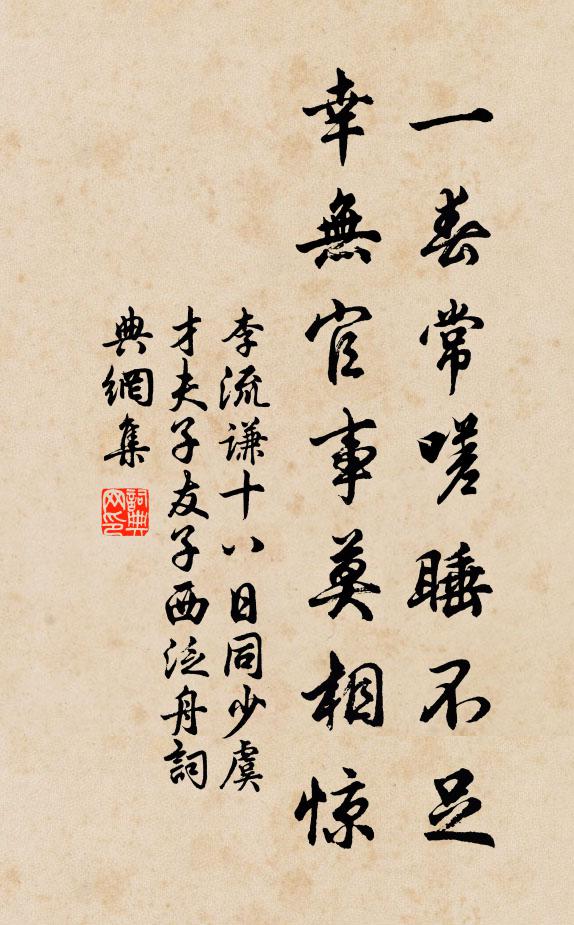 一春常嗟睡不足
幸無官事莫相惊
李流謙十八日同少虞
才夫子友子西泛舟詞
典網集
詞典网印